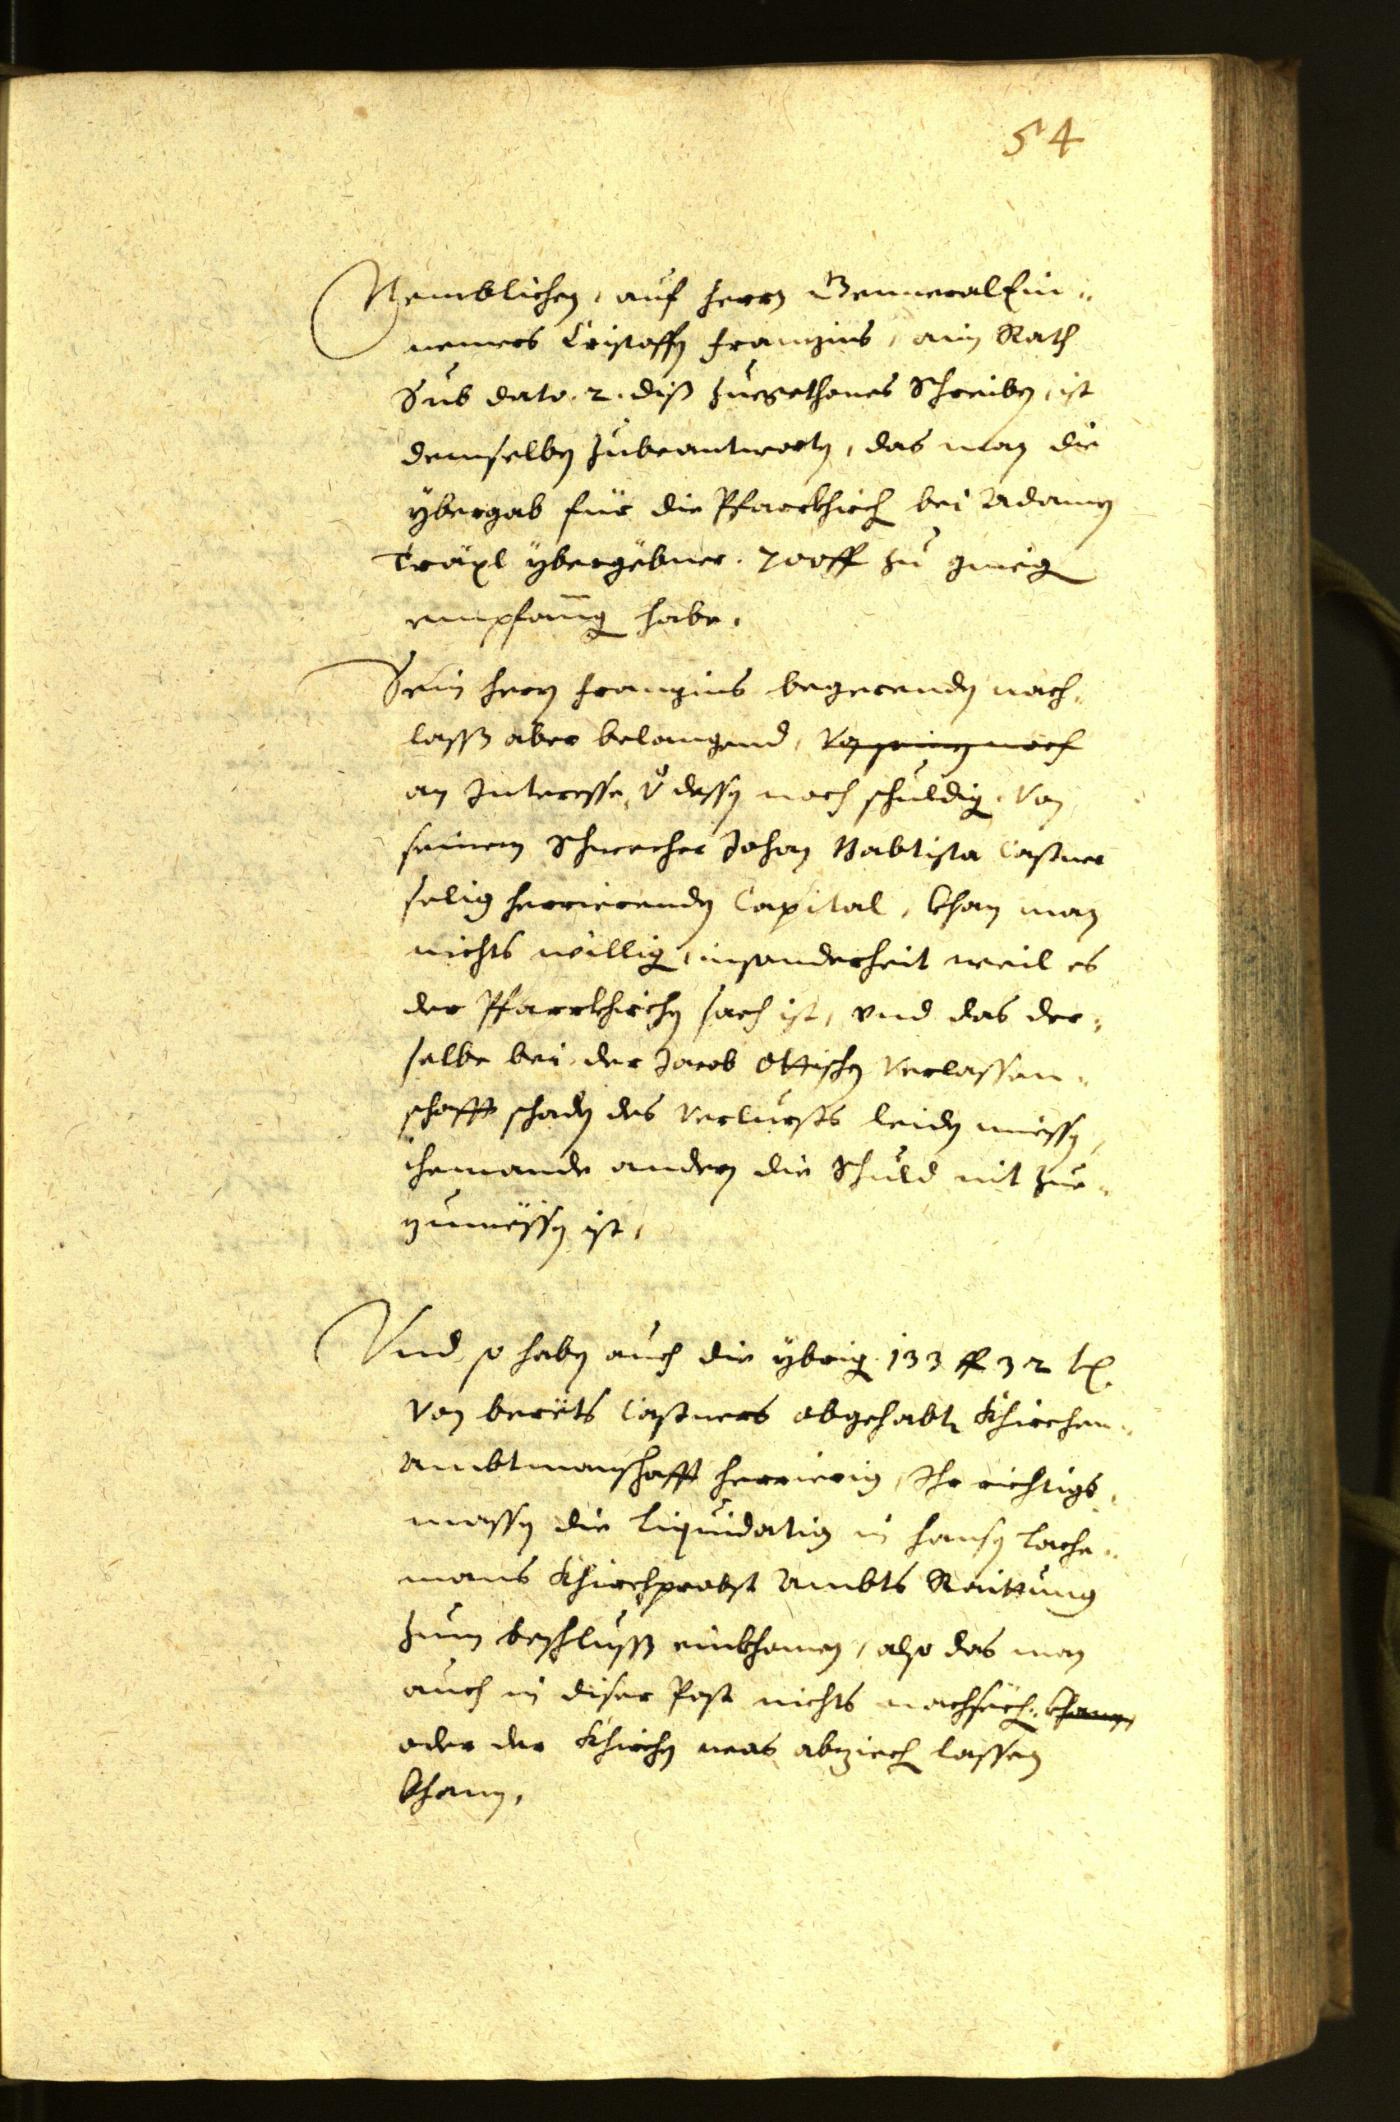 54
Nemblichen, auf herrn GenneralEin¬
nemers Cristoffen Franzins, ain Rath
Sub dato. 2. diß zuegethones Schreiben, ist
demselben zubeantworten, das man die
ybergab für die Pfarrkhirch bei Adamen
Träxl ybergebner. 700 ff zu gnieg
empfanng habe.
Sein herrn Franzins begerenden nach¬
lassß aber belangend, von seinen noch
an Interesse, dessen noch schuldig. Von
seinem Schwecher Johan Babtista Castner
selig herrierenden Capital, khan man
nichts willig, insonderheit weil es
der Pfarrkhirchen sach ist, vnd das der¬
selbe bei der Jacob Ottischen Verlassen¬
schafft schaden des Verlursts leiden müessen,
ihemande andern die Schuld nit zue¬
zumessen ist,
Vnd so haben auch die ybrig. 133 ff 32 kr.
Von berüets Castners obgehabten Khirchen¬
Ambtmanschafft herrierig, Ihr richtigs
massen die Liquidation in Hansen Lache¬
mans Khirchprobst Ambts Raittung
zum beschlusß einkhomen, also das man
auch in diser Post nichts nachsech. khann,
oder der Khirchen was abziech lassen
khann,